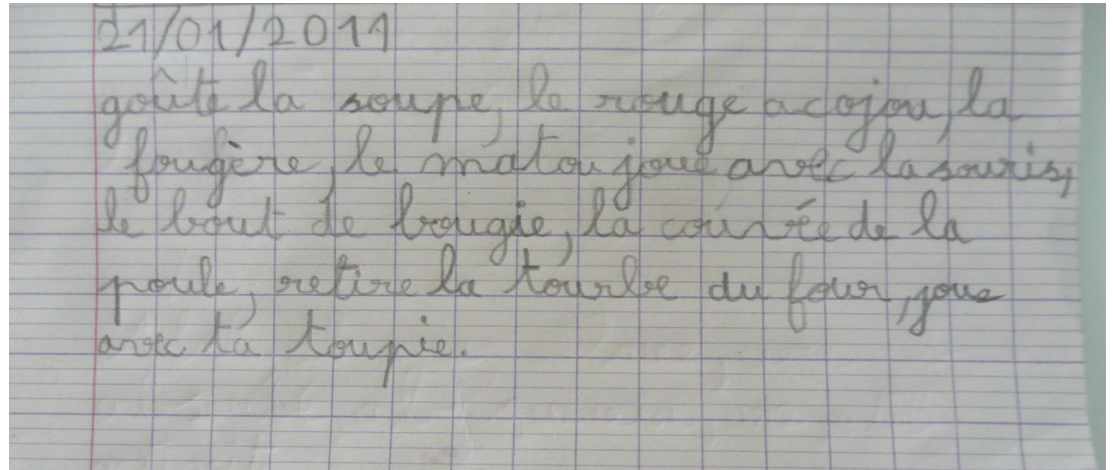 21/01/2011
goûte la soupe, le rouge acojou, la
fougère, le matou joue avec la souris,
le bout de bougie, la couvée de la
poule, retire la tourbe du four, joue
avec ta toupie.